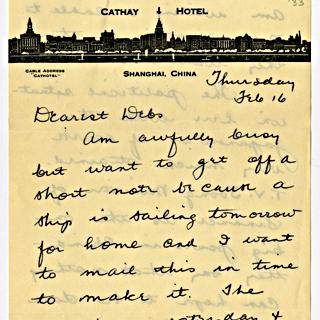 '33
CATHAY HOTEL
CABLE ADDRESS
"CATHOTEL"
SHANGHAI, CHINA
Thursday
Feb 16
Dearest Debs
Am awfully busy
but want to get off a
short note because a
ship is sailing tomorrow
for home and I want
to mail this in time
to make it. The
&